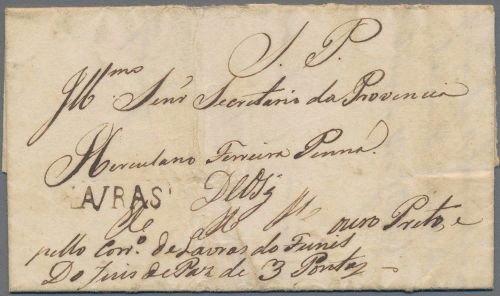 S. P.
Illmo Senr Secretario da Provencia
Herculano Ferreira Penna
LAVRAS
De VSa
ouro Preto, e
pello Corro. de Lavras do Funil
Do Juis de Paz de 3 Pontas